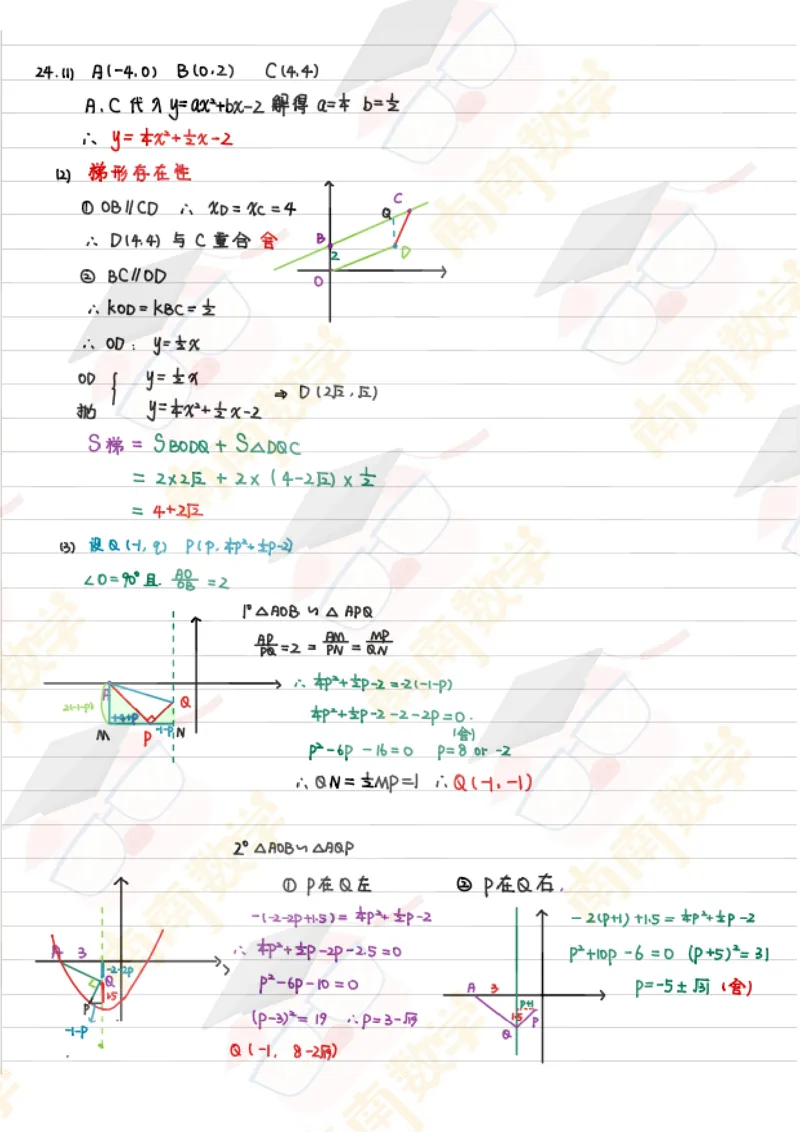 24.(1) A(-4,0) B(0,2) C(4,4)
A、C代入y=ax²+bx-2 解得 a=¼ b=½
∴ y=¼x²+½x-2
(2) 梯形存在性
① OB∥CD ∴ xD=xC=4
∴ D(4,4) 与 C 重合 舍
② BC∥OD
∴ kOD=kBC=½
∴ OD: y=½x
OD { y=½x
抛 y=¼x²+½x-2
⇒ D(2√2,√2)
S梯 = SBODQ + S△DQC
= 2×2√2 + 2×(4-2√2)×½
= 4+2√2
C
Q
B
2
D
O
(3) 设Q(-1,q) P(p,¼p²+½p-2)
∠O=90°且 AO/OB =2
1° △AOB∽△APQ
AP/PQ=2=AM/PN=MP/QN
∴ ¼p²+½p-2=-2(-1-p)
¼p²+½p-2-2-2p=0.
(舍)
p²-6p-16=0 p=8 or -2
∴ QN=½MP=1 ∴Q(-1,-1)
A
Q
2(-1-p)
-1-p
M
P
N
2° △AOB∽△AQP
① P在Q左
-(-2-2p+1.5)=¼p²+½p-2
∴ ¼p²+½p-2p-2.5=0
p²-6p-10=0
(p-3)²=19 ∴p=3-√19
Q(-1, 8-2√19)
A 3
-2-2p
Q
1.5
P
-1-p
② P在Q右.
-2(p+1)+1.5=¼p²+½p-2
p²+10p-6=0 (p+5)²=31
p=-5±√31 (舍)
A 3
p+1
1.5
P
Q
南南数学
南南数学
南南数学
南南数学
南南数学
南南数学
南南数学
南南数学